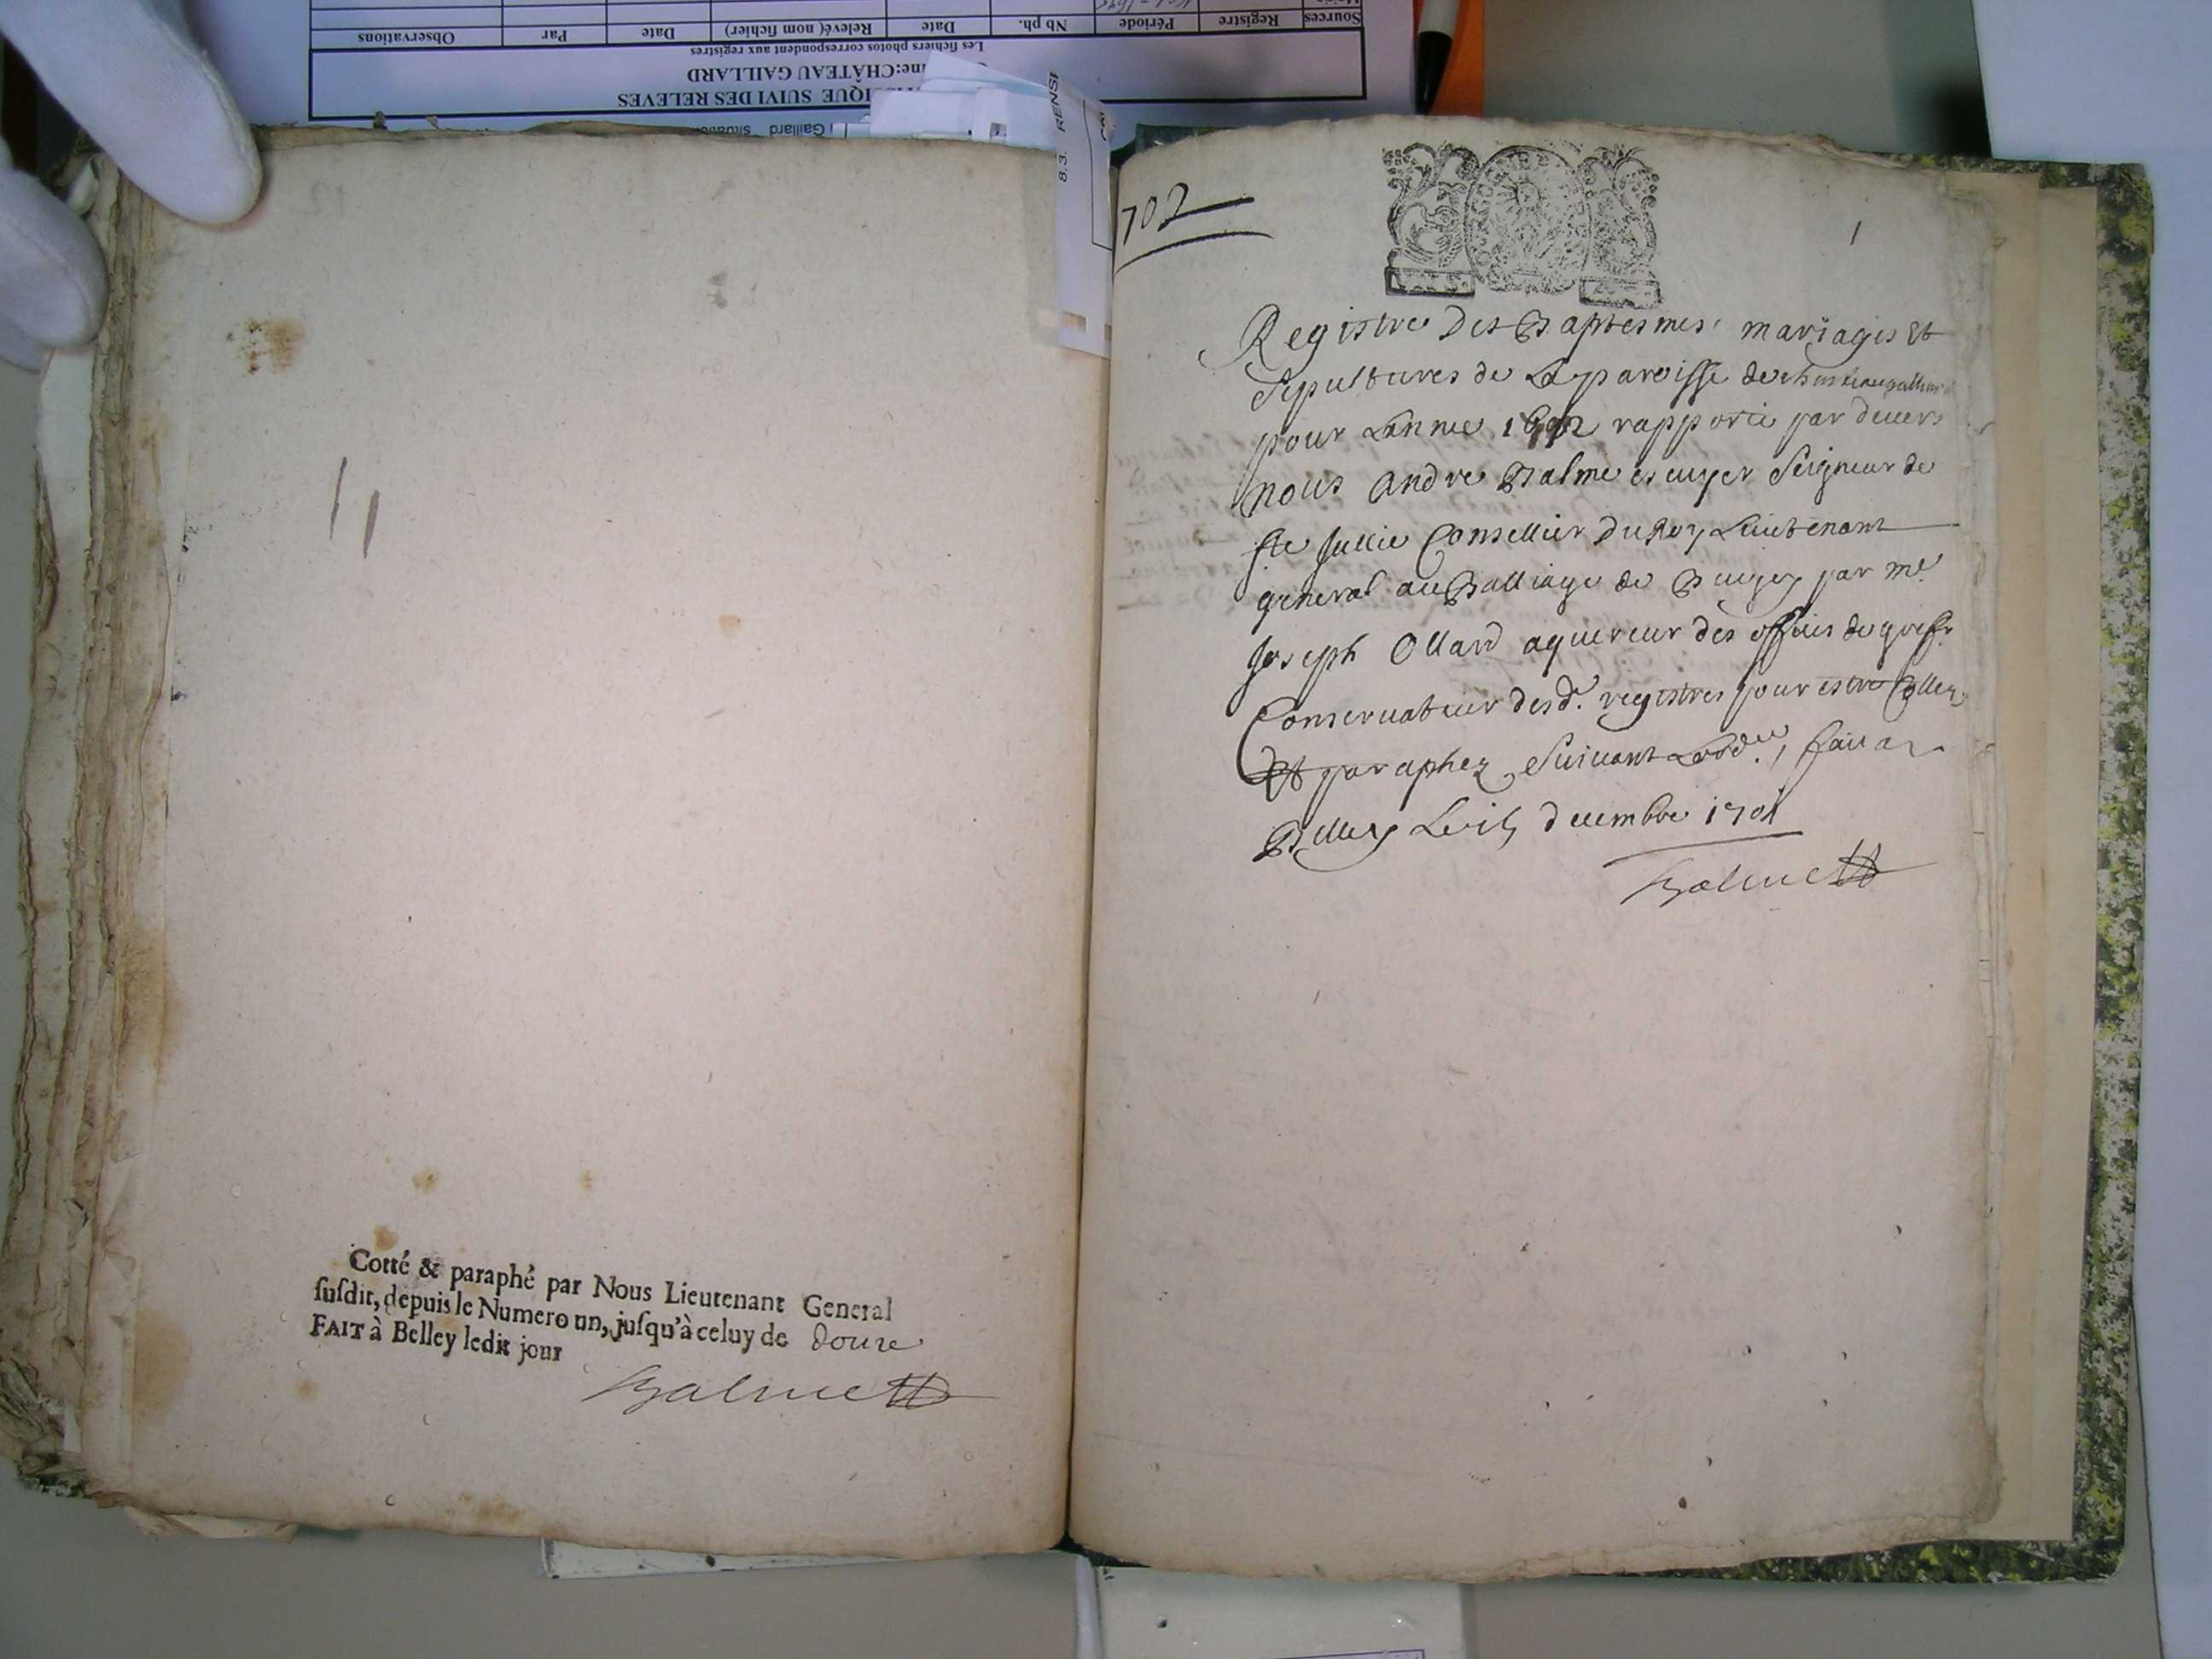 Sources Registre Période Nb ph. Date Relevé( nom fichier) Date Par Observations
Les fichiers photos correspondent aux registres
CHÂTEAU GAILLARD
SUIVI DES RELEVES
Gaillard
8.3. RENSE
Cotté & paraphé par Nous Lieutenant General
ſuſdit, depuis le Numero un, juſqu'à celuy de douze
FAIT à Belley ledit jour
Balme
702
1
Registre Des Baptesmes mariages Et
Sepultures de La paroisse de chasteaugalliard
pour Lannee 1692 rapporté par devers
nous Andre Balme escuyer Seigneur de
Ste Jullie Consellier Du Roy Lieutenant
general au Balliage de Bugey par me
Joseph Ollard aquereur des offices de greffr
Conservateur desd. registres pour estre Collez
Et paraphez Suivant Lord. fait a
Belley Le decembre 1701
Balme